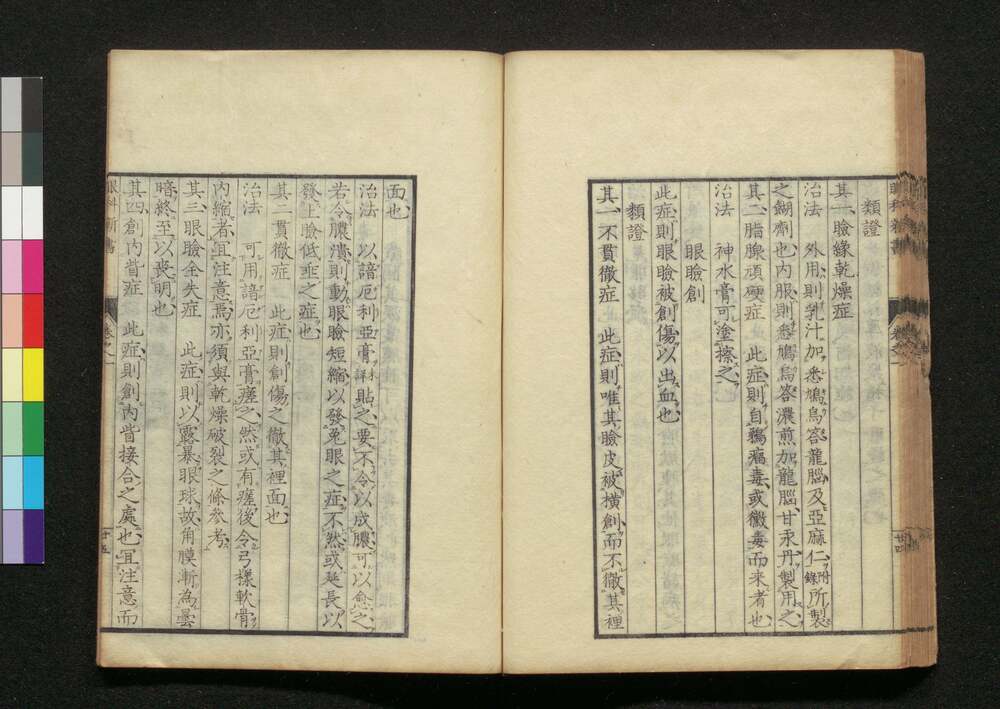 類證
其一瞼緣乾燥症
治法 外用則乳汁加悉鳩烏答龍腦及亞麻仁附錄所製
之餬劑也内服則悉鳩烏答濃煎加龍腦甘汞丹製用之
其二脂腺頑硬症 此症則自鶏瘑毒或黴毒而来者也
治法 神水膏可塗擦之
眼瞼創
此症則眼瞼被創傷以出血也
類證
其一不貫徹症 此症則唯其瞼皮被横創而不徹其裡
面也
治法 以諳厄利亞膏未詳貼之要不令以成膿可以愈之
若令膿潰則動眼瞼短縮以發兎眼之症不然或延長以
發上瞼低垂之症也
其二貫徹症 此症則創傷之徹其裡面也
治法 可用諳厄利亞膏瘥之然或有瘥後令弓様軟骨
内縮者宜注意焉亦須與乾燥破裂之條參考
其三眼瞼全失症 此症則以露暴眼球故角膜漸為曇
暗終至以喪明也
其四創内眥症 此症則創内眥接合之處也宜注意而
眼科新書
卷之一
十五